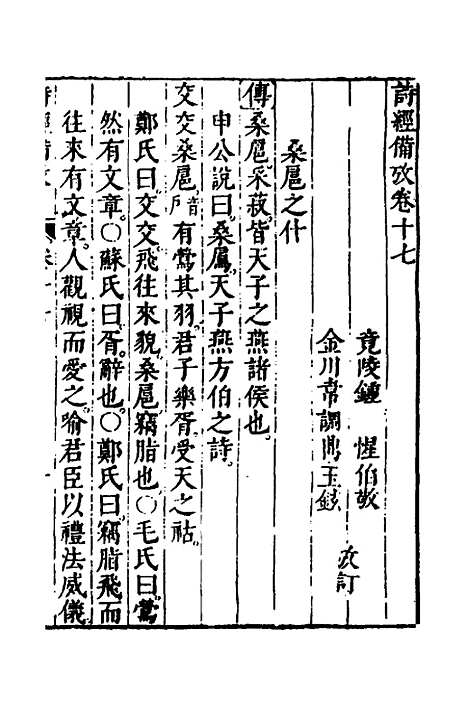 詩經備攷卷十七
竟陵鍾　惺伯敬
金川韋調鼎玉鉉
攷訂
桑扈之什
傳桑扈采菽皆天子之燕諸侯也
申公說曰桑扈天子燕方伯之詩
交交桑扈音戶有鶯其羽君子樂胥受天之祜
鄭氏曰交交飛往來貌桑扈竊脂也○毛氏曰鶯
然有文章○蘇氏曰胥辭也○鄭氏曰竊脂飛而
往來有文章人觀視而愛之喻君臣以禮法威儀